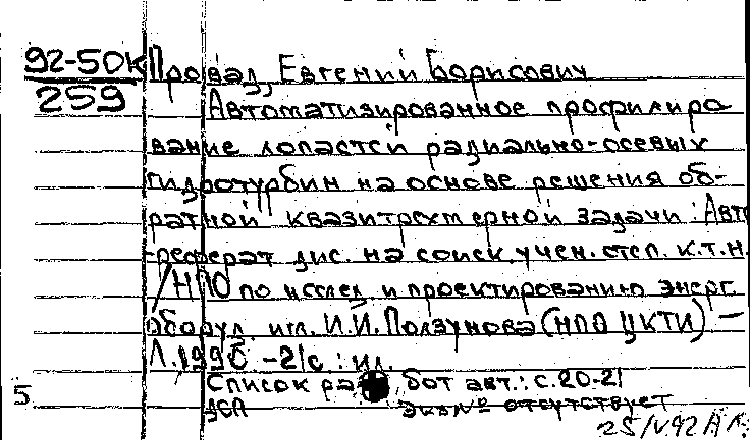 92-50К Провад, Евгений Борисович
259
Автоматизированное профилиро
вание лопастей радиально-осевых
гидротурбин на основе решения об-
ратной квазитрехмерной задачи: Авто
реферат дис. на соиск. учен. степ. к.т.н.
/НПО по исслед. и проектированию энерг.
оборуд. им. И.И. Ползунова (НПО ЦКТИ) –
Л. 1990 -21с.: ил.
Список ра бот авт.: с.20-21
5 ДСП экз№ отсутствует
25/V.92